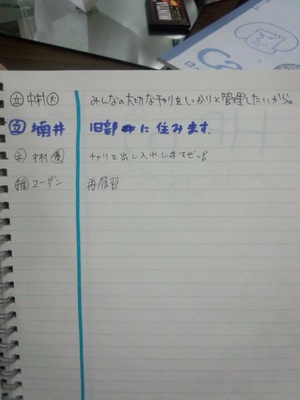 中村 みんなの大切なチャリをしっかりと管理したいから。
楠井 旧部に住みます。
中村 チャリを出し入れしますぜっ!!
スーザン 再履習